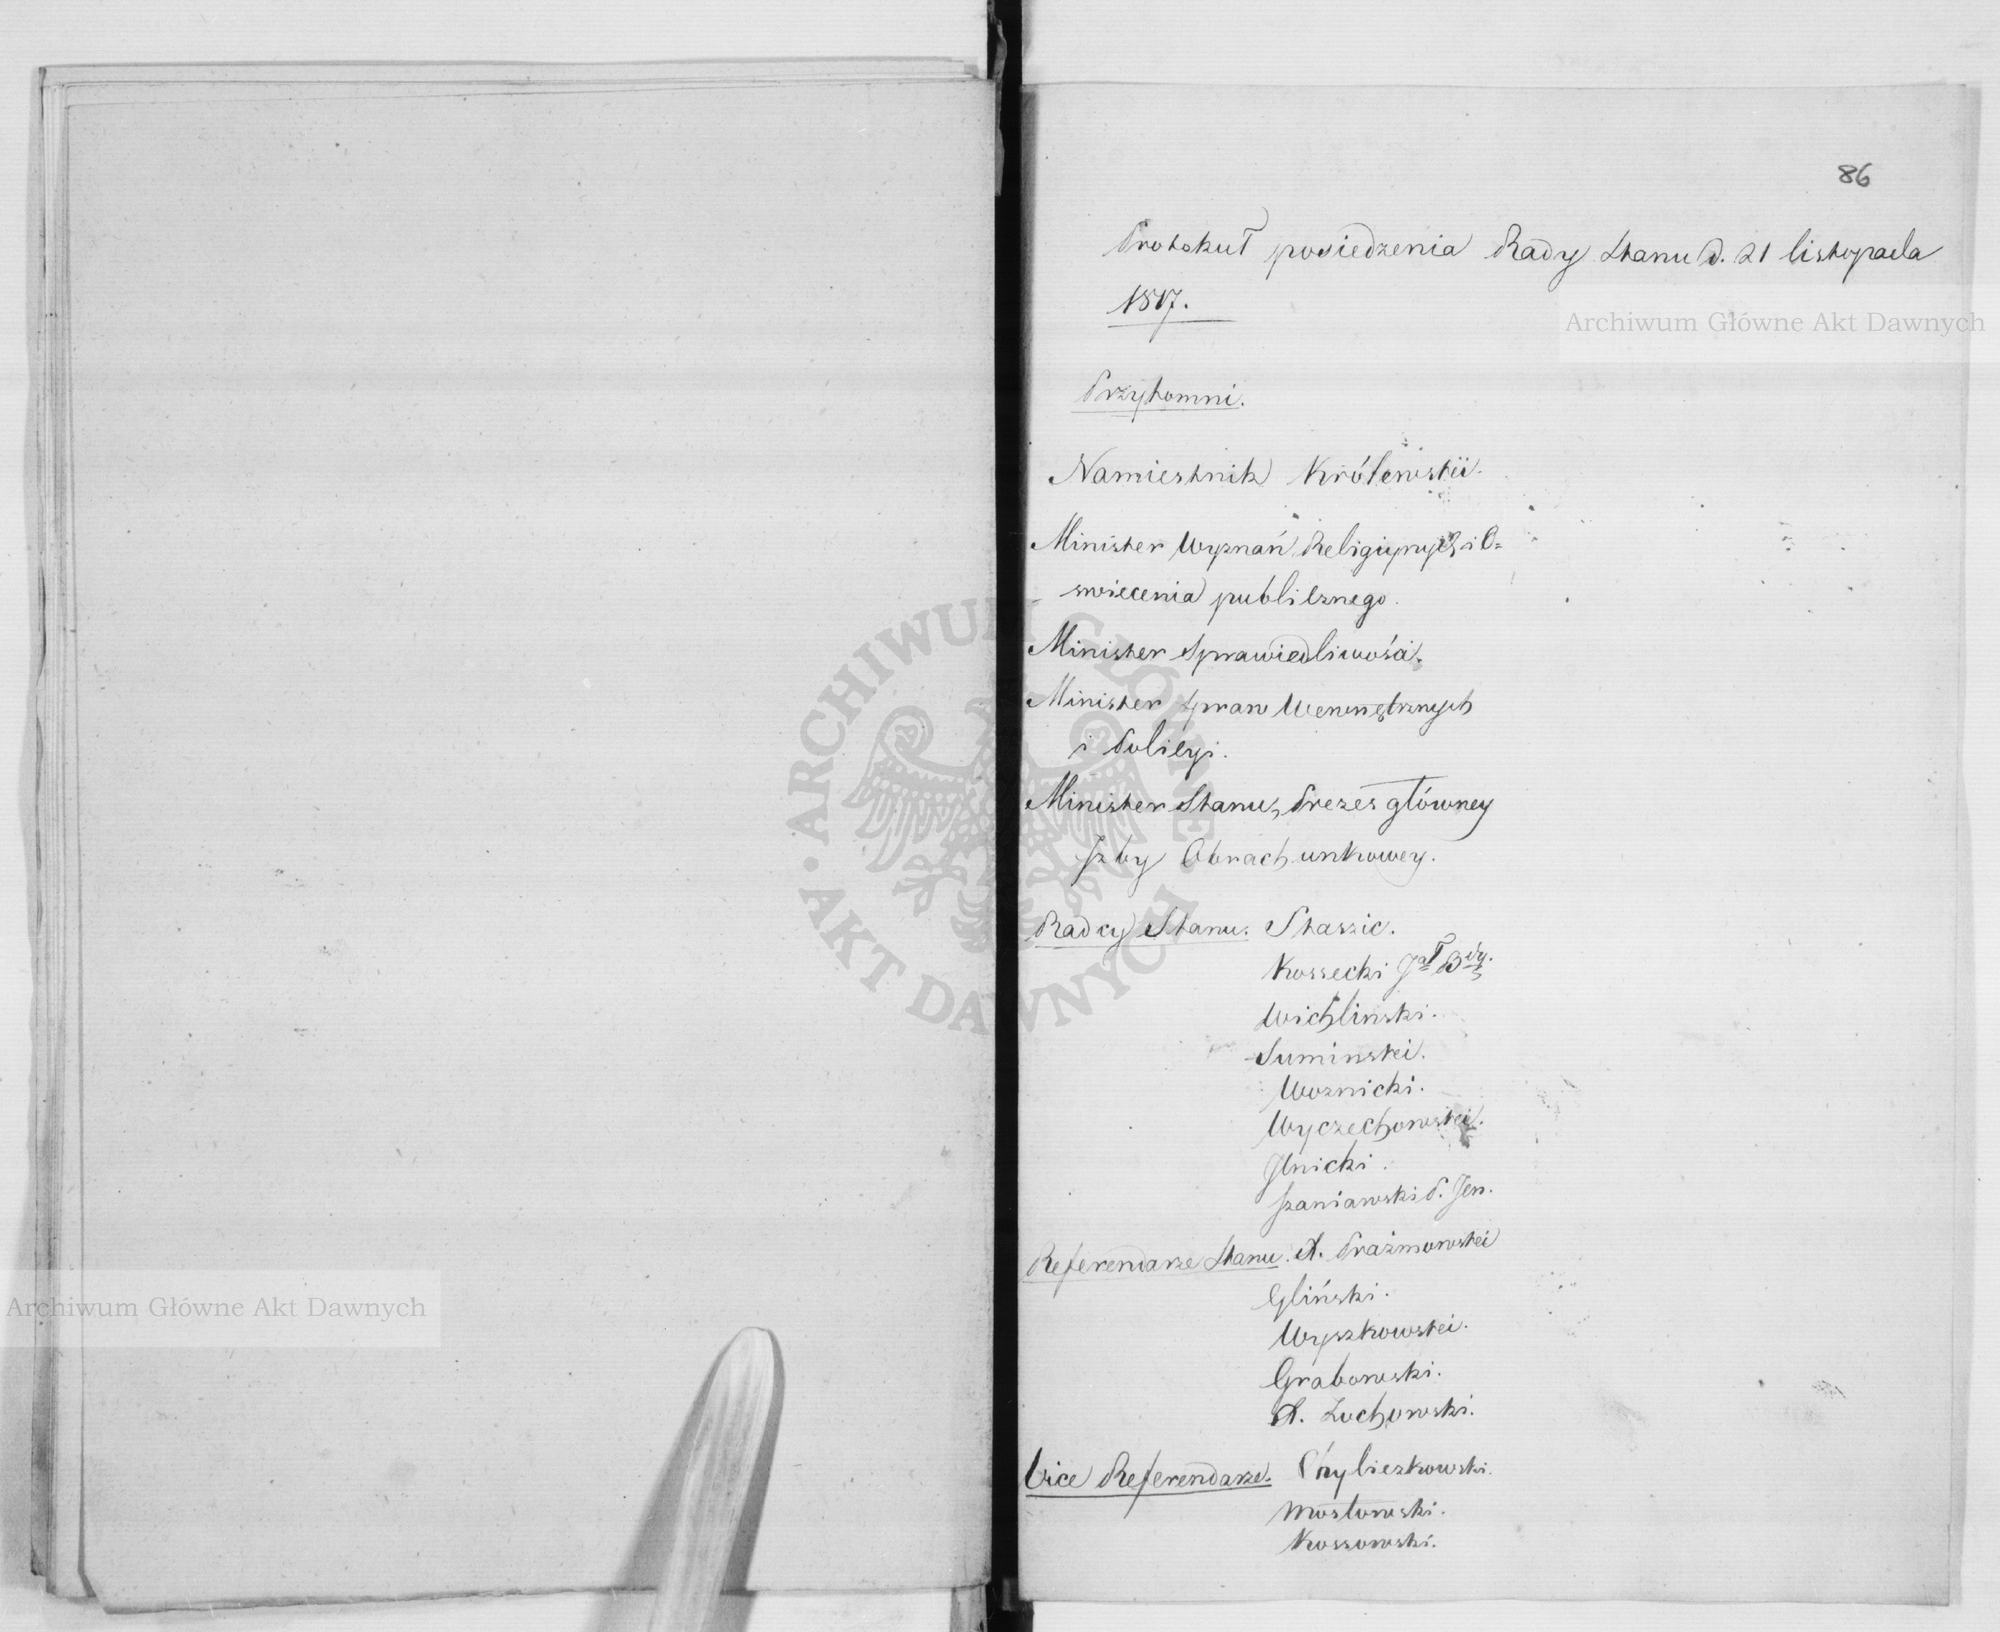 86
Protokuł posiedzenia Rady Stanu d. 21 listopada
1817.
Archiwum Główne Akt Dawnych
Przytomni.
Namiestnik Królewski.
Minister Wyznań Religiynych i O=
swiecenia publicznego.
Minister Sprawiedliwości.
Minister Spraw Wewnętrznych
i Policyi.
Minister Stanu, Prezes główney
Izby Obrachunkowey.
Radcy Stanu. Staszic.
Kossecki Jał Bdy.
Wichliński.
Sumiński.
Woznicki.
Wyczechowski.
Ilnicki.
Szaniawski P. Jen.
Referendarze Stanu. A. Prażmowski
Gliński.
Wyszkowski.
Grabowski.
A. Łuchowski.
Vice Referendarze. Przybieszkowski.
Mostowski.
Kossowski.
Archiwum Główne Akt Dawnych
ARCHIWUM GŁÓWNE
AKT DAWNYCH